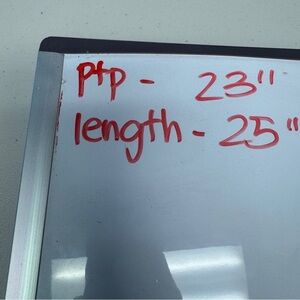 ptp - 23"
length - 25"